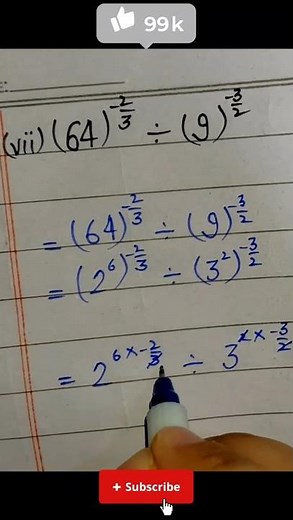 99k
(vii) (64)^(-2/3) ÷ (9)^(-3/2)
= (64)^(-2/3) ÷ (9)^(-3/2)
= (2^6)^(-2/3) ÷ (3^2)^(-3/2)
= 2^(6×-2/3) ÷ 3^(2×-3/2)
+ Subscribe